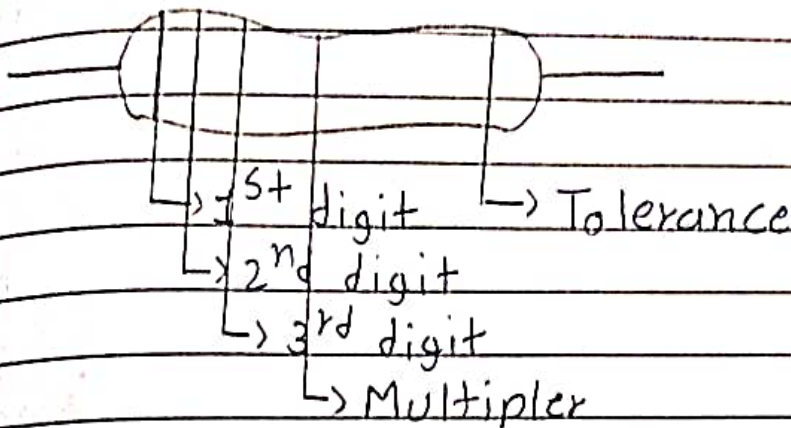 1st digit
Tolerance
2nd digit
3rd digit
Multipler